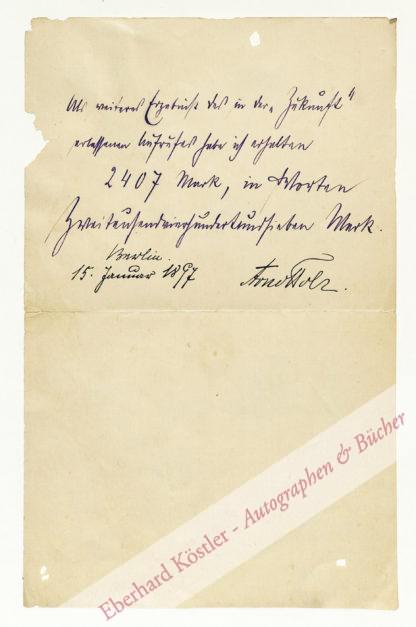 Als weiteres Ergebniß des in der „Zukunft“
erlassenen Aufrufes habe ich erhalten
2407 Mark, in Worten
Zweitausendvierhundertundsieben Mark.
Berlin.
15. Januar 1897
Arno Holz.
Eberhard Köstler - Autographen & Bücher